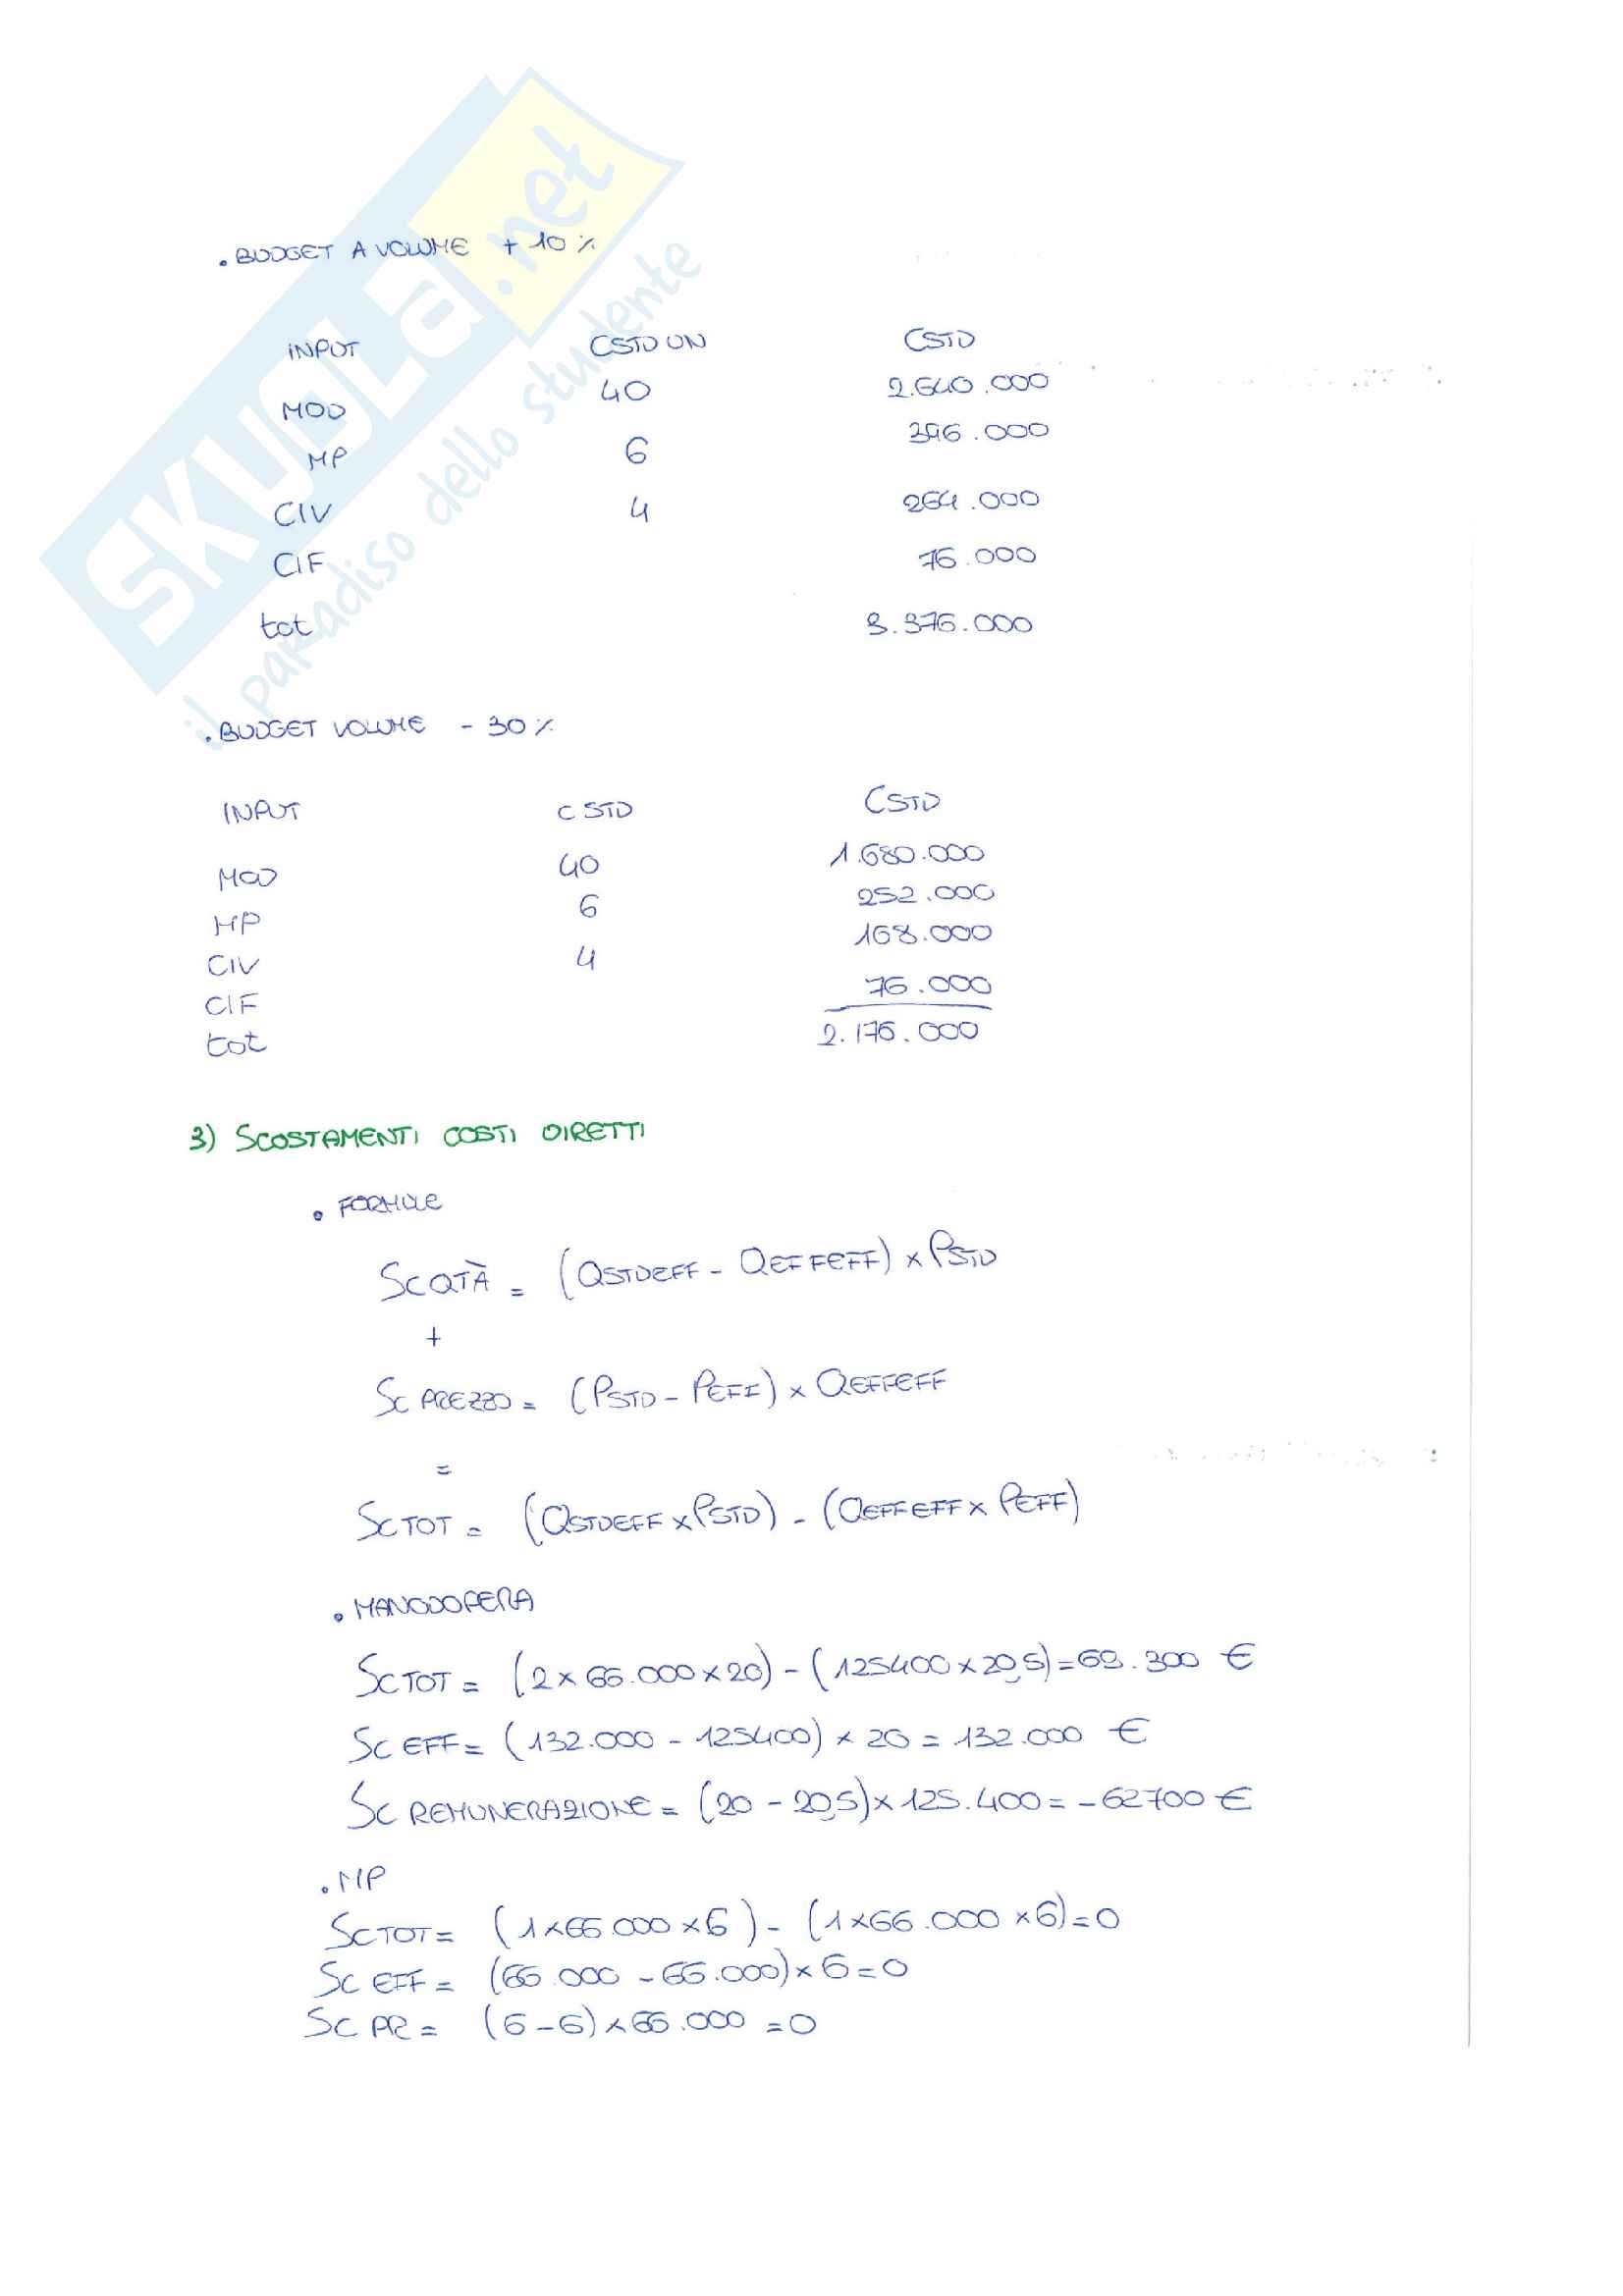 SKUOLA.net
il paradiso dello studente
. BUDGET A VOLUME + 10 %
INPUT CSTD UN CSTD
MOD 40 2.640.000
MP 6 396.000
CIV 4 264.000
CIF 76.000
tot 3.376.000
. BUDGET VOLUME - 30 %
INPUT C STD CSTD
MOD 40 1.680.000
MP 6 252.000
CIV 4 168.000
CIF 76.000
tot 2.176.000
3) SCOSTAMENTI COSTI DIRETTI
. FORMULE
SCQTÀ = (QSTDEFF - QEFFEFF) x PSTD
+
SC PREZZO = (PSTD - PEFF) x QEFFEFF
=
SCTOT = (QSTDEFF x PSTD) - (QEFFEFF x PEFF)
. MANODOPERA
SCTOT = (2 x 66.000 x 20) - (125400 x 20,5) = 69.300 €
SC EFF = (132.000 - 125400) x 20 = 132.000 €
SC REMUNERAZIONE = (20 - 20,5) x 125.400 = - 62700 €
. MP
SCTOT = (1 x 66.000 x 6) - (1 x 66.000 x 6) = 0
SC EFF = (66.000 - 66.000) x 6 = 0
SC PR = (6 - 6) x 66.000 = 0